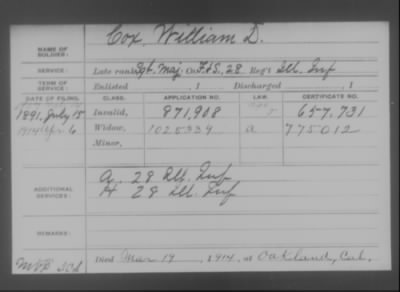 NAME OF SOLDIER: Cox, William D.
SERVICE: Late rank Sgt. Maj. Co. F&S, 28 Reg't Ill. Inf
TERM OF SERVICE: Enlisted , 1 Discharged , 1
DATE OF FILING. CLASS. APPLICATION NO. LAW. CERTIFICATE NO.
1891, July 15 Invalid, 871,908 657,731
1914 Apr. 6 Widow, 1025339 775012
Minor,
ADDITIONAL SERVICES: A. 28 Ill. Inf
H 28 Ill. Inf
REMARKS:
Died Mar 19, 1914, at Oakland, Cal.